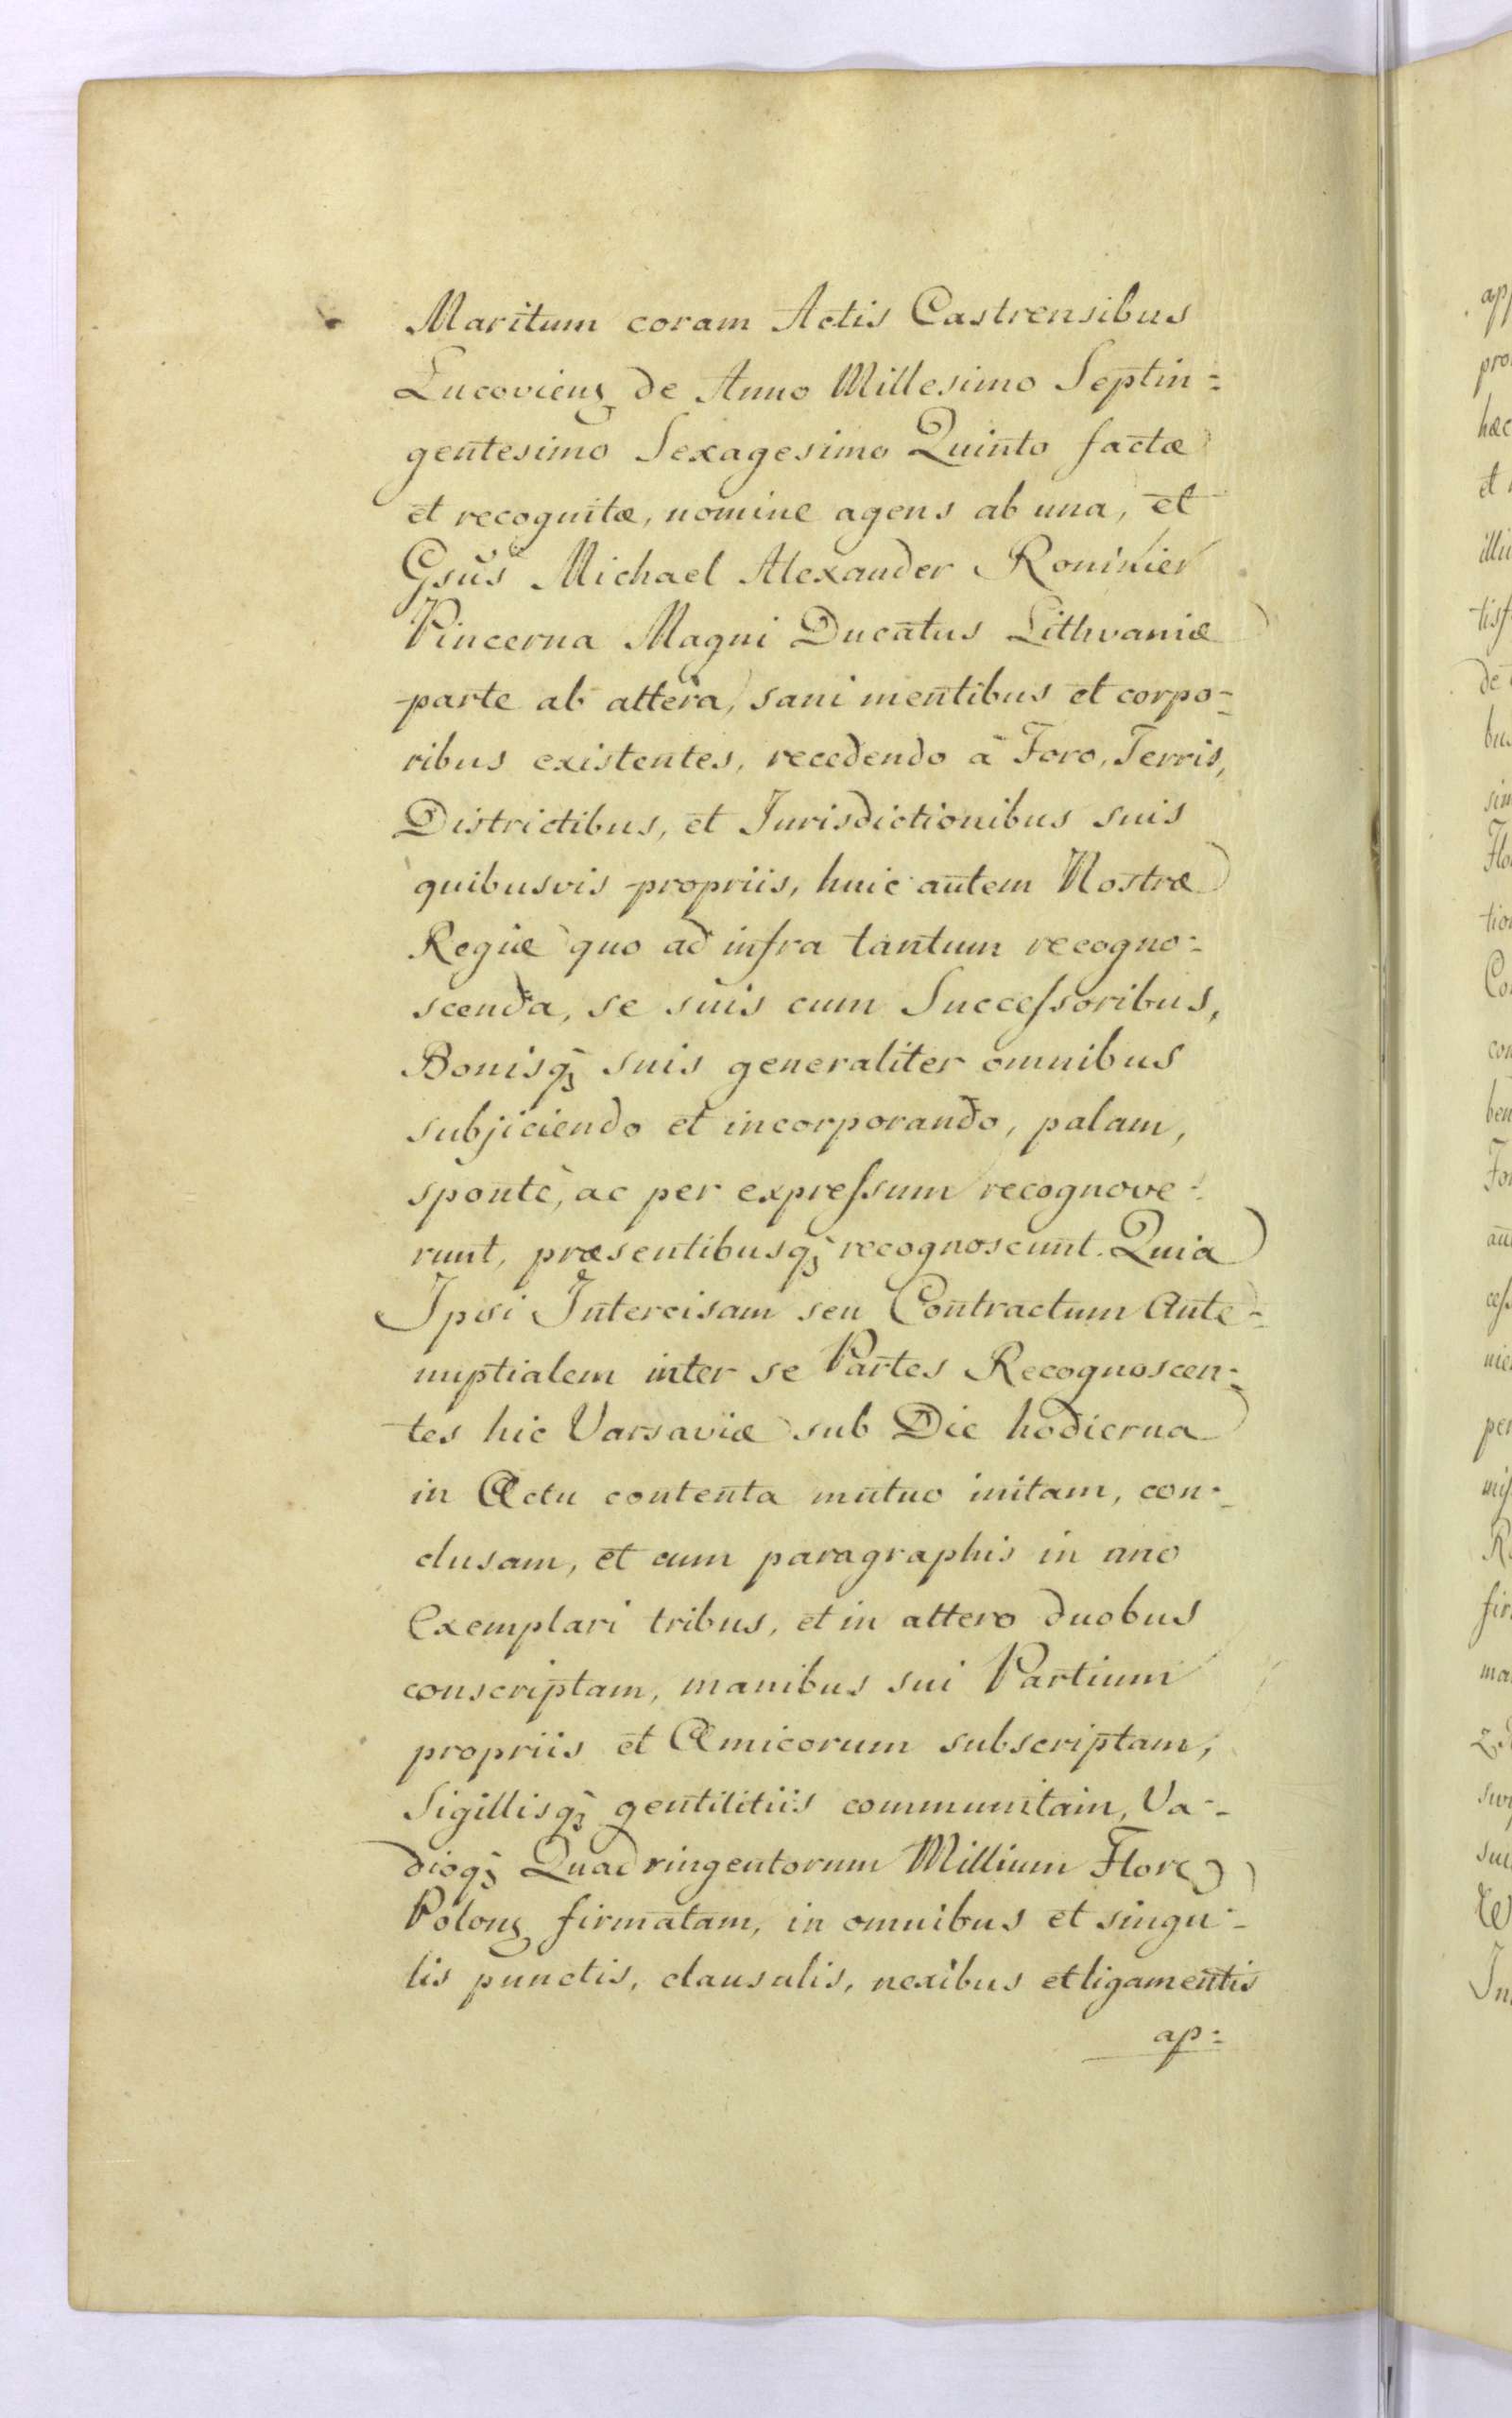 Maritum coram Actis Castrensibus
Lucovienꝫ de Anno Millesimo Septin=
gentesimo Sexagesimo Quinto factæ
et recognitæ, nomine agens ab una, et
Gsūs Michael Alexander Ronikier
Pincerna Magni Ducatus Lithvaniæ
parte ab altera, sani mentibus et corpo=
ribus existentes, recedendo à Foro, Terris,
Districtibus, et Jurisdictionibus suis
quibusvis propriis, huic autem Nostræ
Regiæ quo ad infra tantum recogno=
scenda, se suis cum Successoribus,
Bonisqꝫ suis generaliter omnibus
subjiciendo et incorporando, palam,
spontè, ac per expressum recognove=
runt, præsentibusqꝫ recognoscunt. Quia
Ipsi Intercisam seu Contractum Ante=
nuptialem inter se Partes Recognoscen=
tes hic Varsaviæ sub Die hodierna
in Actu contenta mutuo initam, con=
clusam, et cum paragraphis in uno
Exemplari tribus, et in altero duobus
conscriptam, manibus sui Partium
propriis et Amicorum subscriptam,
Sigillisqꝫ gentilitiis communitam, Va=
dioqꝫ Quadringentorum Millium Flore
Polonꝫ firmatam, in omnibus et singu=
lis punctis, clausulis, nexibus et ligamentis
ap=